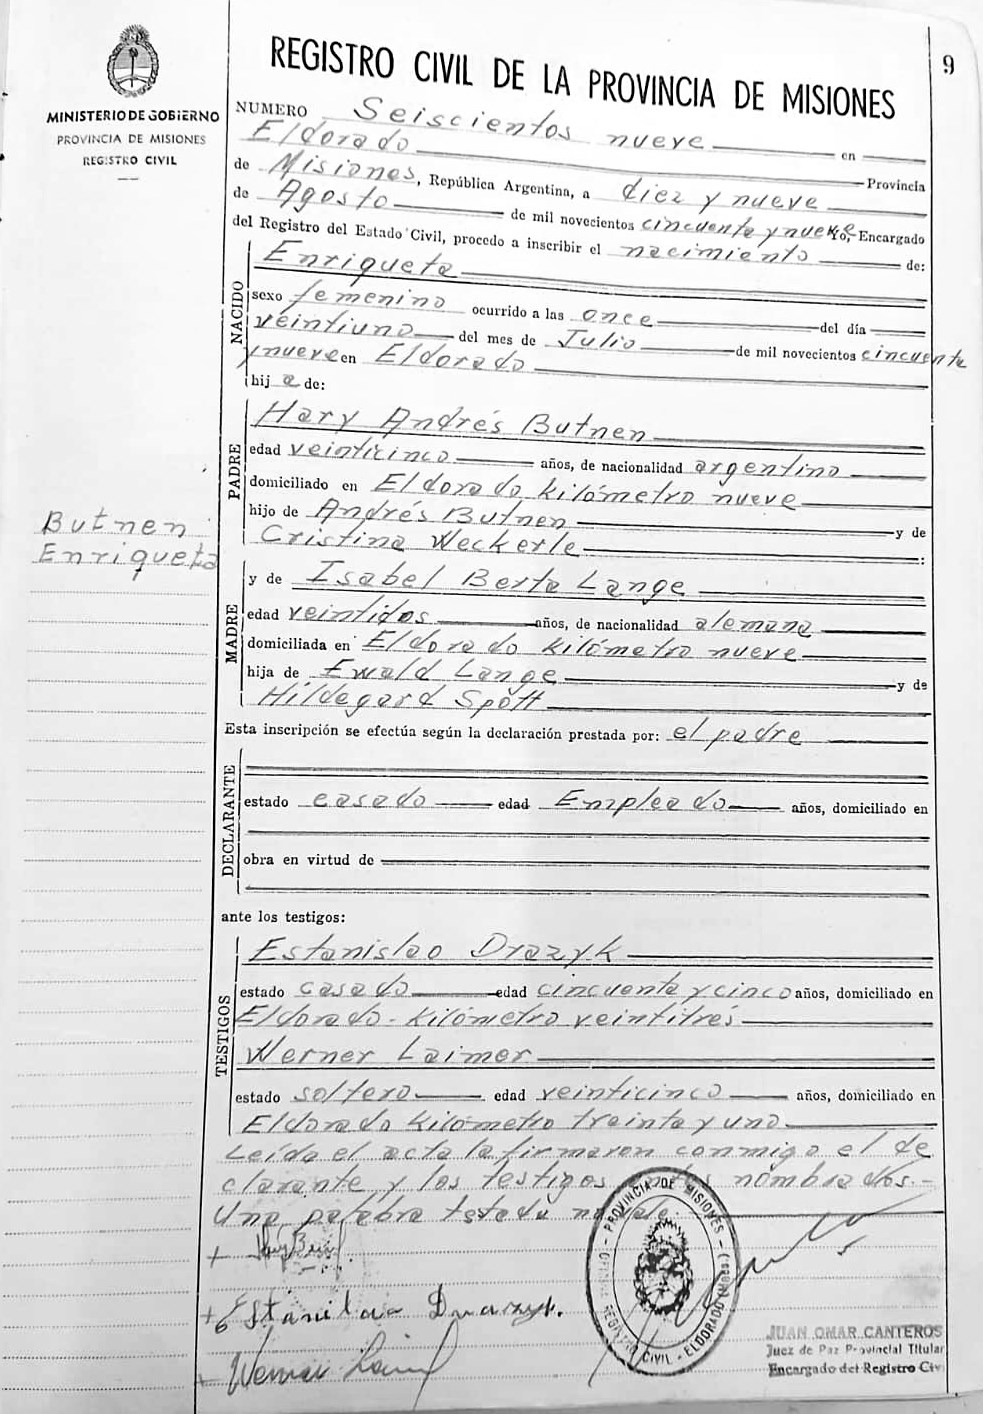 9
REGISTRO CIVIL DE LA PROVINCIA DE MISIONES
MINISTERIO DE GOBIERNO
PROVINCIA DE MISIONES
REGISTRO CIVIL
NUMERO Seiscientos nueve en
Eldorado Provincia
de Misiones, República Argentina, a diez y nueve
de Agosto de mil novecientos cincuenta y nueve Yo, Encargado
del Registro del Estado Civil, procedo a inscribir el nacimiento de:
NACIDO
Enriqueta
sexo femenino ocurrido a las once del día
veintiuno del mes de Julio de mil novecientos cincuenta
y nueve en Eldorado
hij a de:
PADRE
Hary Andrés Butnen
edad veinticinco años, de nacionalidad argentino
domiciliado en Eldorado kilómetro nueve
hijo de Andrés Butnen y de
Cristina Weckerle :
Butnen
Enriqueta
MADRE
y de Isabel Berta Lange
edad veintidos años, de nacionalidad alemana
domiciliada en Eldorado kilómetro nueve
hija de Ewald Lange y de
Hildegard Spott
Esta inscripción se efectúa según la declaración prestada por: el padre
DECLARANTE
estado casado edad Empleado años, domiciliado en
obra en virtud de
ante los testigos:
TESTIGOS
Estanislao Drazyk
estado casado edad cincuenta y cinco años, domiciliado en
Eldorado - kilómetro veintitrés
Werner Laimer
estado soltero edad veinticinco años, domiciliado en
Eldorado kilómetro treinta y uno
Leída el acta la firmaron conmigo el de
clarante y los testigos nombrados.-
Una palabra testada no vale.
PROVINCIA DE MISIONES - REGISTRO CIVIL - ELDORADO (Mnes.)
JUAN OMAR CANTEROS
Juez de Paz Provincial Titular
Encargado del Registro Civ